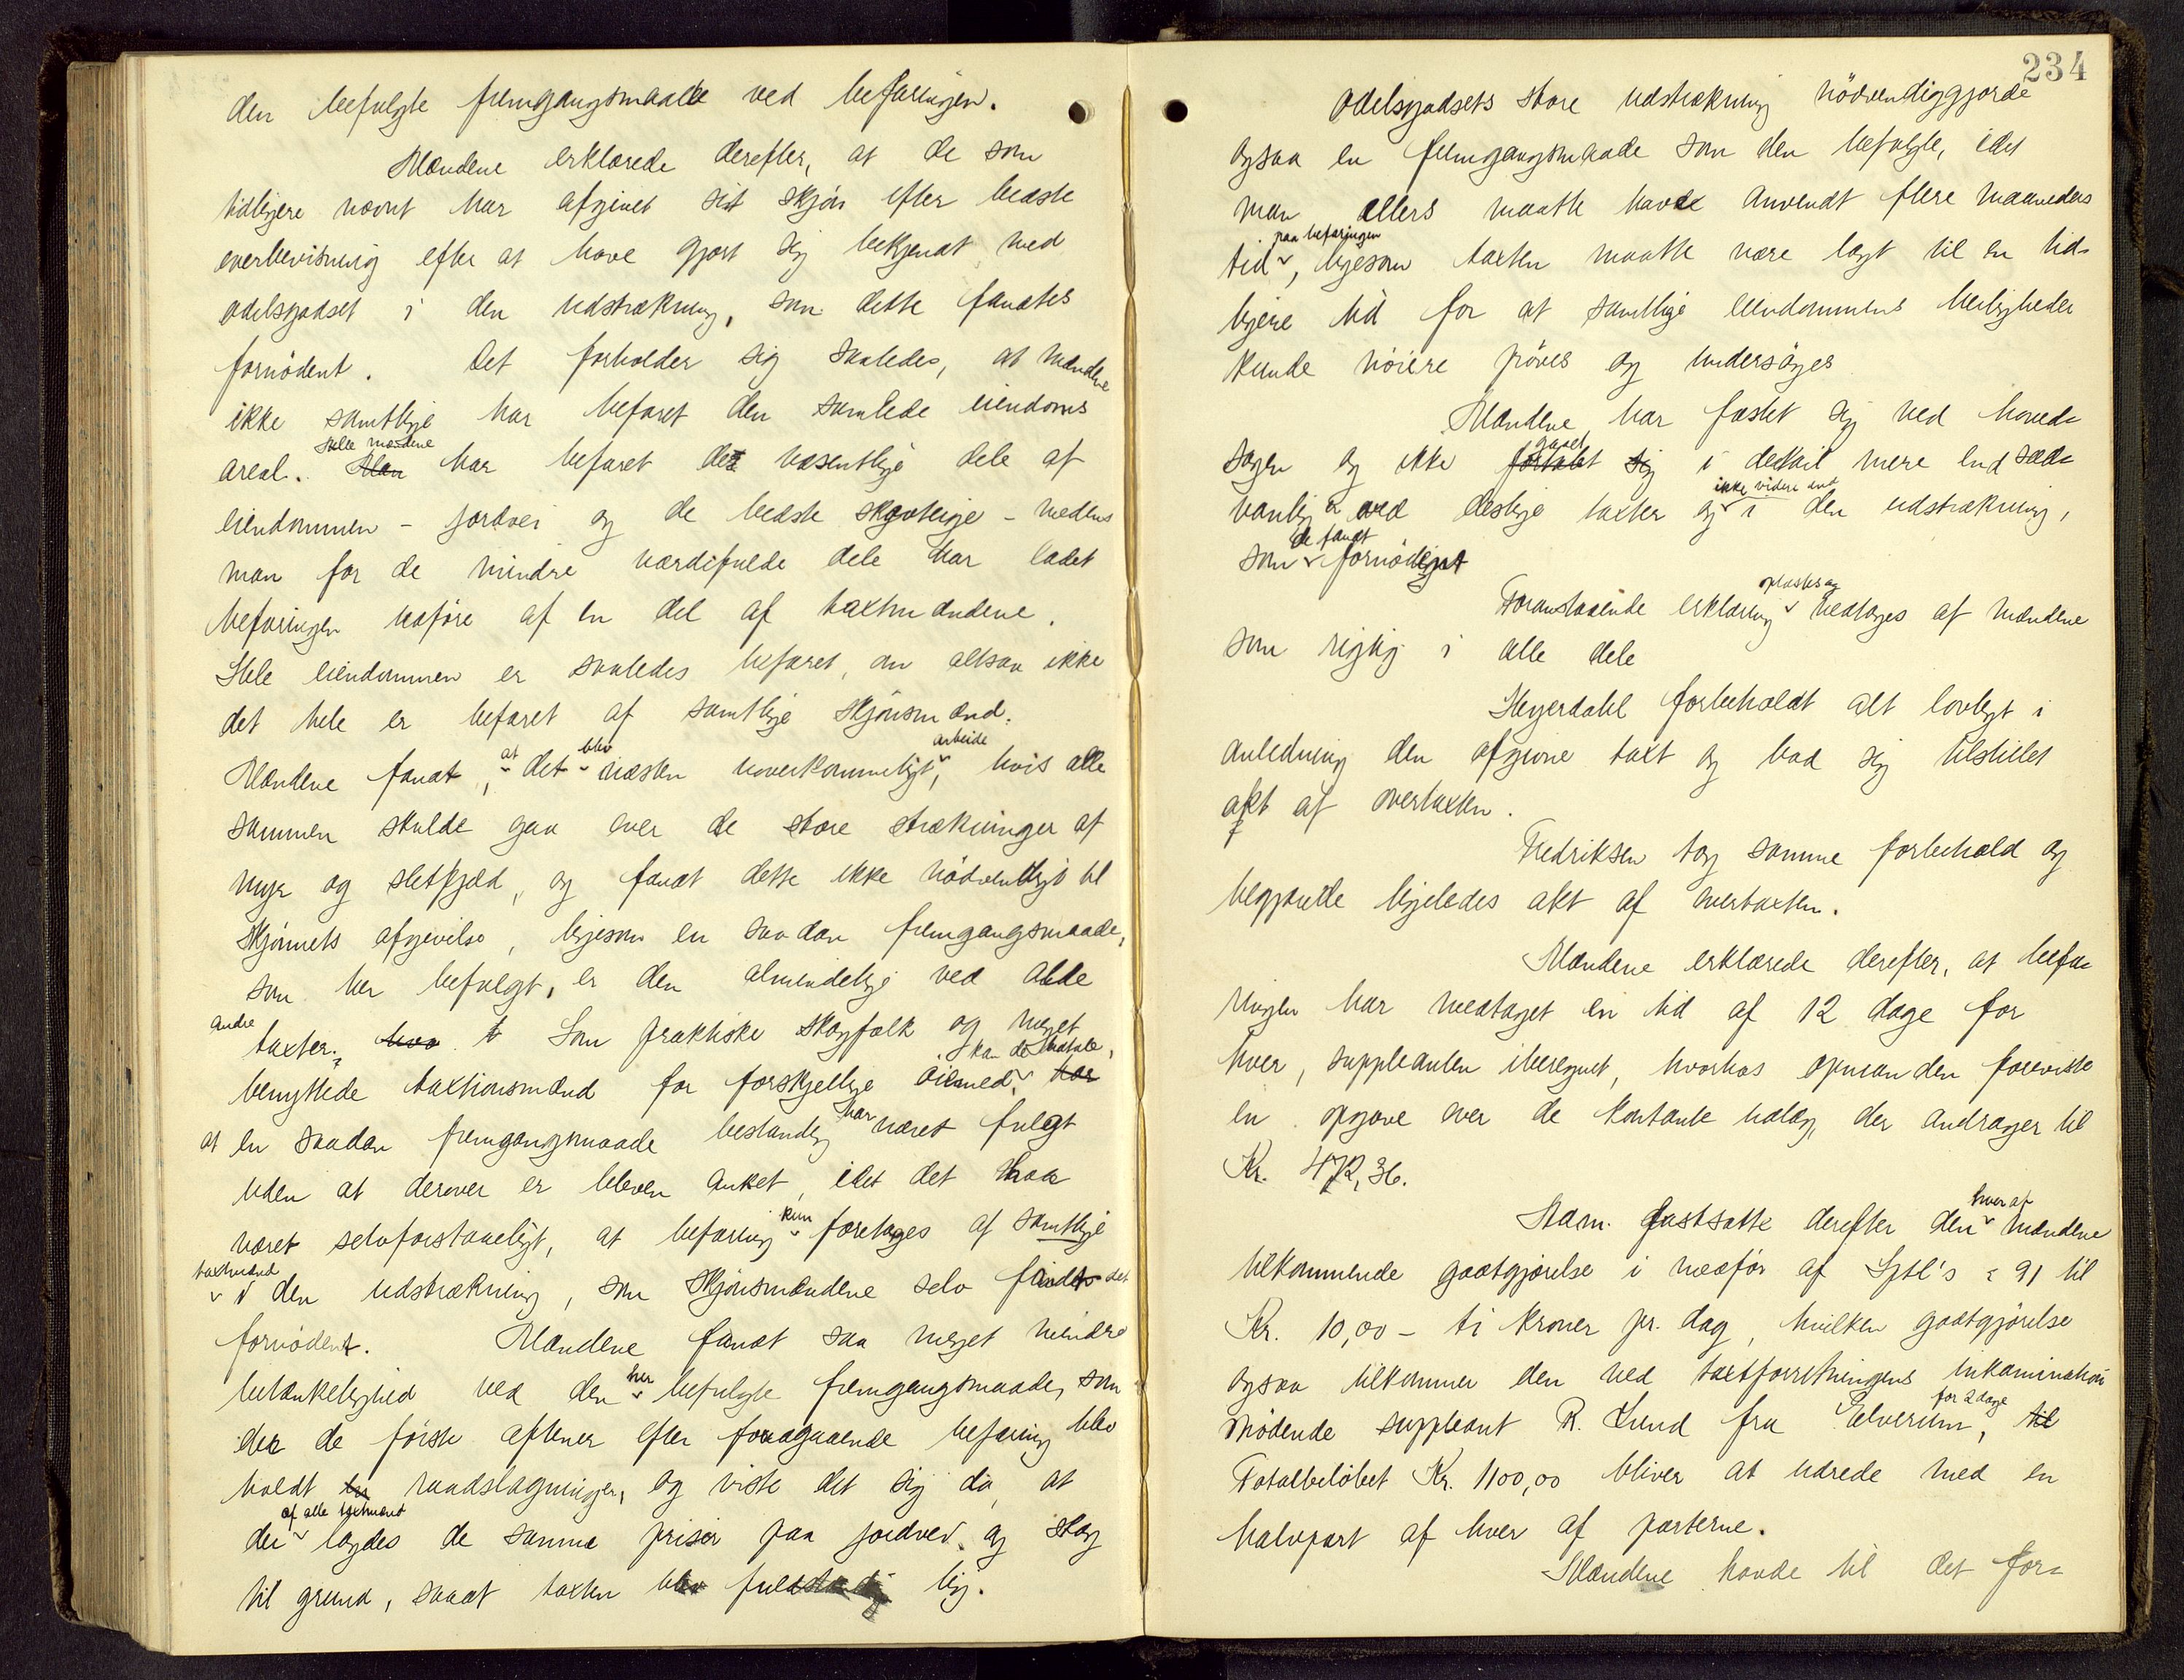 den befulgte fremgangsmaade ved befaringen.
Mændene erklærede derefter, at de som
tidligere nævnt har afgivet sit skjøn efter bedste
overbevisning efter at have gjort sig bekjendt med
odelsgodset i den udstrækning, som dette fandtes
fornödent. Det forholder sig saaledes, at mændene
ikke samtlige har befaret den samlede eiendoms
areal. Alle mændene har befaret de væsentlige dele af
eiendommen - jordvei og de bedste skogteige - medens
man for de mindre værdifulde dele har ladet
befaringen udføre af en del af taxtmændene.
Hele eiendommen er saaledes befaret, om altsaa ikke
det hele er befaret af samtlige skjönsmænd.
Mændene fandt, at det blev næsten uoverkommeligt arbeide, hvis alle
sammen skulde gaa over de store strækninger af
myr og sletfjeld, og fandt dette ikke nödvendigt til
skjønnets afgivelse, ligesom en saadan fremgangsmaade,
som her befulgt, er den almindelige ved alle
andre taxter. Som praktiske skogfolk og meget
benyttede taxtionsmænd for forskjellige öiemed kan de udtale,
at en saadan fremgangsmaade bestandig har været fulgt
uden at derover er bleven anket, idet det har
været selvforstaaeligt, at befaring kun foretages af samtlige
taxtmænd i den udstrækning, som skjönsmændene selv finder det
fornödent. Mændene fandt saa meget mindre
betænkelighed ved den her befulgte fremgangsmaade, som
der de første aftener efter foregaaende befaring blev
holdt raadslagninger, og viste det sig da, at
der af alle taxtmænd lagdes de samme priser paa jordvei og skog
til grund, saaat taxten blev fuldstændig lig.
234
Odelsgodsets store udstrækning nödvendiggjorde
ogsaa en fremgangsmaade som den befulgte, idet
man ellers maatte havde anvendt flere maaneders
tid paa befaringen, ligesom taxten maatte være lagt til en tid-
ligere tid for at samtlige eiendommens herligheder
kunde nöiere pröves og undersöges
Mændene har fæstet sig ved hoved-
sagen og ikke gaaet i detail mere end sæd-
vanlig er ved deslige taxter og ikke videre end i den udstrækning,
som de fandt fornödent
Foranstaaende erklæring oplæstes og vedtages af mændene
som rigtig i alle dele
Heyerdahl forbeholdt alt lovligt i
anledning den afgivne taxt og bad sig tilstillet
akt af overtaxten.
Fredriksen tog samme forbehold og
begjærede ligeledes akt af overtaxten.
Mændene erklærede derefter, at befa-
ringen har medtaget en tid af 12 dage for
hver, suppleanten iberegnet, hvorhos opmanden foreviste
en opgave over de kontante udlæg, der andrager til
Kr. 472,36.
Adm. fastsatte derefter den hver af mændene
tilkommende godtgjörelse i medför af Sptl's = 91 til
Kr. 10,00 - ti kroner pr. dag, hvilken godtgjörelse
ogsaa tilkommer den ved taxtforretningens inkamination
mödende suppleant R. Lund fra Elverum, for 2 dage
Totalbelöbet Kr. 1100,00 bliver at udrede med en
halvpart af hver af parterne.
Mændene havde til det for-